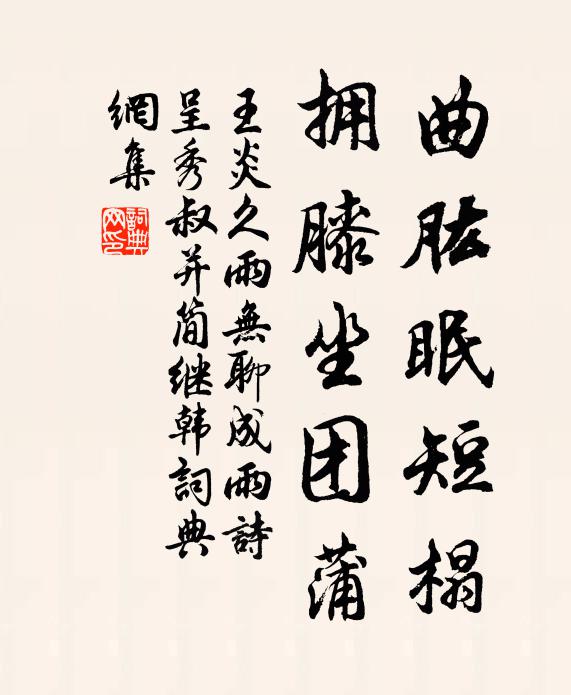 曲肱眠短榻
拥膝坐团蒲
王炎久雨無聊成雨詩
呈秀叔并简继韩詞典
網集
詞典网印